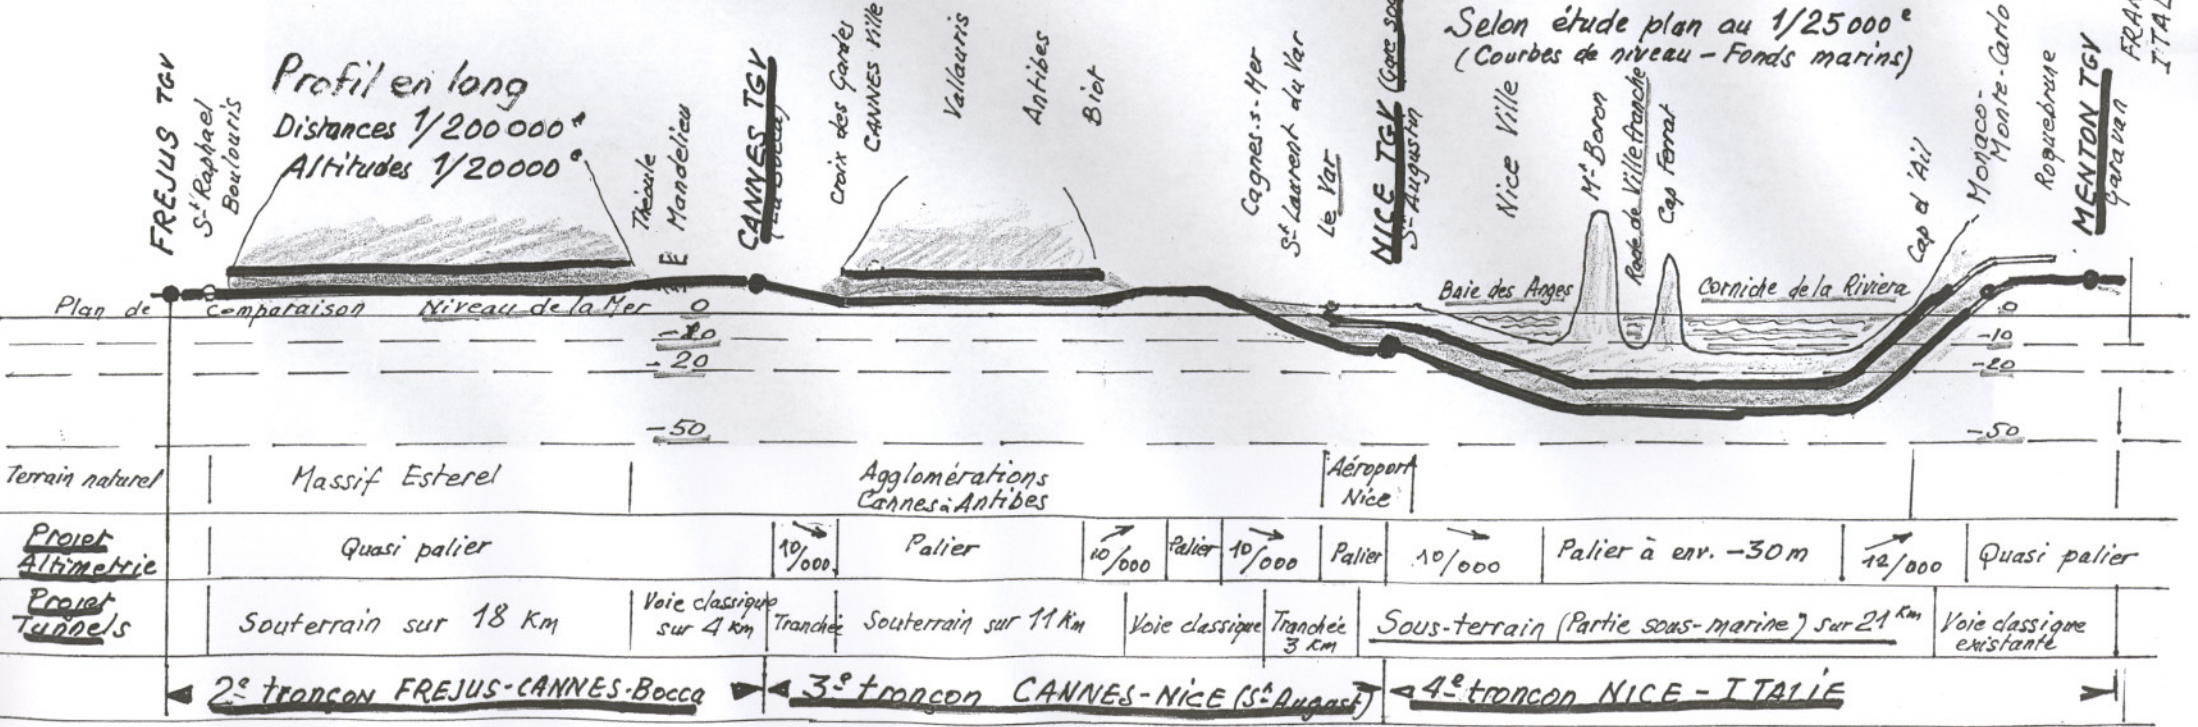 FREJUS TGV
St Raphael
Boulouris
Profil en long
Distances 1/200000e
Altitudes 1/20000e
Théoule
Mandelieu
CANNES TGV
Croix des Gardes
CANNES Ville
Vallauris
Antibes
Biot
Cagnes.s-Mer
St Laurent du Var
Le Var
NICE TGV
St Augustin
Selon étude plan au 1/25000e
(Courbes de niveau - Fonds marins)
Nice Ville
Mt Boron
Rade de Villefranche
Cap Ferrat
Cap d'Ail
Monaco-
Monte-Carlo
Roquebrune
MENTON TGV
Garavan
Baie des Anges
Corniche de la Riviera
Plan de comparaison Niveau de la Mer 0
-10
-20
-50
0
-10
-20
-50
Terrain naturel
Massif Esterel
Agglomérations
Cannes à Antibes
Aéroport
Nice
Projet
Altimetrie
Quasi palier
10/000
Palier
10/000
Palier
10/000
Palier
10/000
Palier à env. -30m
12/000
Quasi palier
Projet
Tunnels
Souterrain sur 18 Km
Voie classique
sur 4 Km
Tranchée
Souterrain sur 11 Km
Voie classique
Tranchée
3 Km
Sous-terrain (Partie sous-marine) sur 21 Km
Voie classique
existante
2e tronçon FREJUS-CANNES-Bocca
3e tronçon CANNES-NICE (St August)
4e tronçon NICE - ITALIE